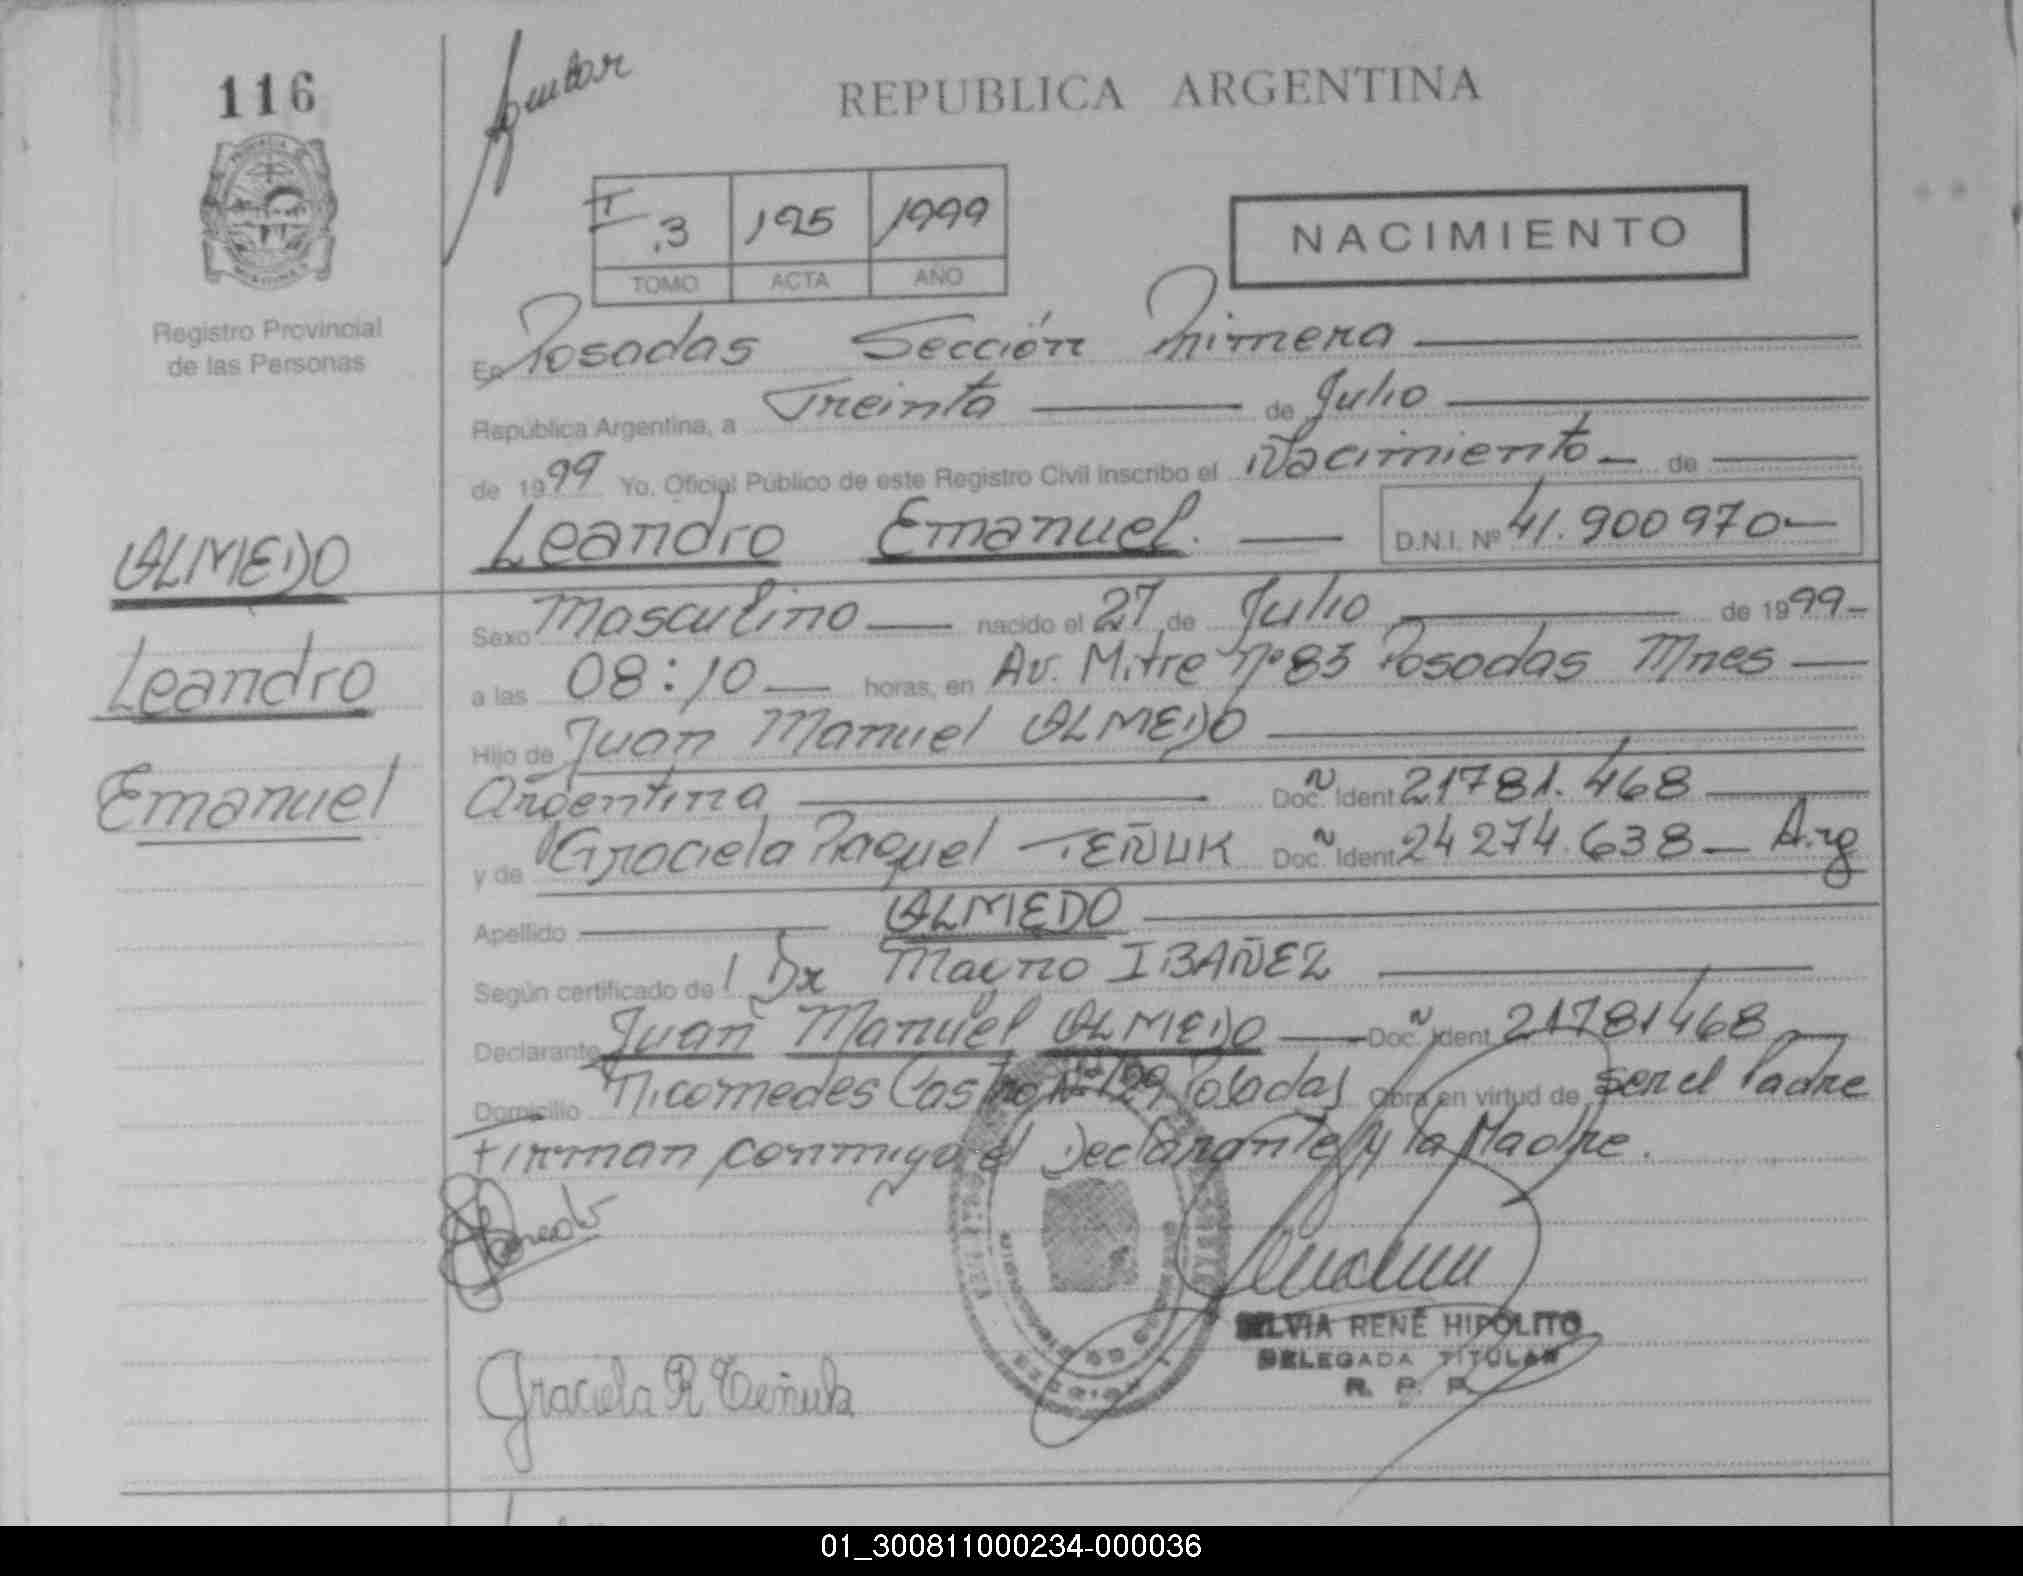 116
REPUBLICA ARGENTINA
I 3 195 1999
TOMO ACTA AÑO
NACIMIENTO
Registro Provincial
de las Personas
En Posadas Sección Primera
República Argentina, a Treinta de Julio
de 1999 Yo, Oficial Público de este Registro Civil inscribo el Nacimiento de
Leandro Emanuel. D.N.I. Nº 41.900970
ALMEDO
Leandro
Emanuel
Sexo Masculino nacido el 27 de Julio de 1999
a las 08:10 horas, en Av. Mitre Nº 83 Posadas Mnes
Hijo de Juan Manuel ALMEDO
Argentina Doc. Ident 21781.468
y de Graciela Raquel TEÑUK Doc. Ident 24274.638 Arg
Apellido ALMEDO
Según certificado de Dr IBAÑEZ
Declarante Juan Manuel ALMEDO Doc. Ident 21781468
Domicilio Nicomedes Castro Nº 129 Posadas Obra en virtud de ser el Padre
Firman conmigo el Declarante y la Madre.
SILVIA RENÉ HIPÓLITO
DELEGADA TITULAR
R. P. P.
Graciela R Teñuk
01_300811000234-000036